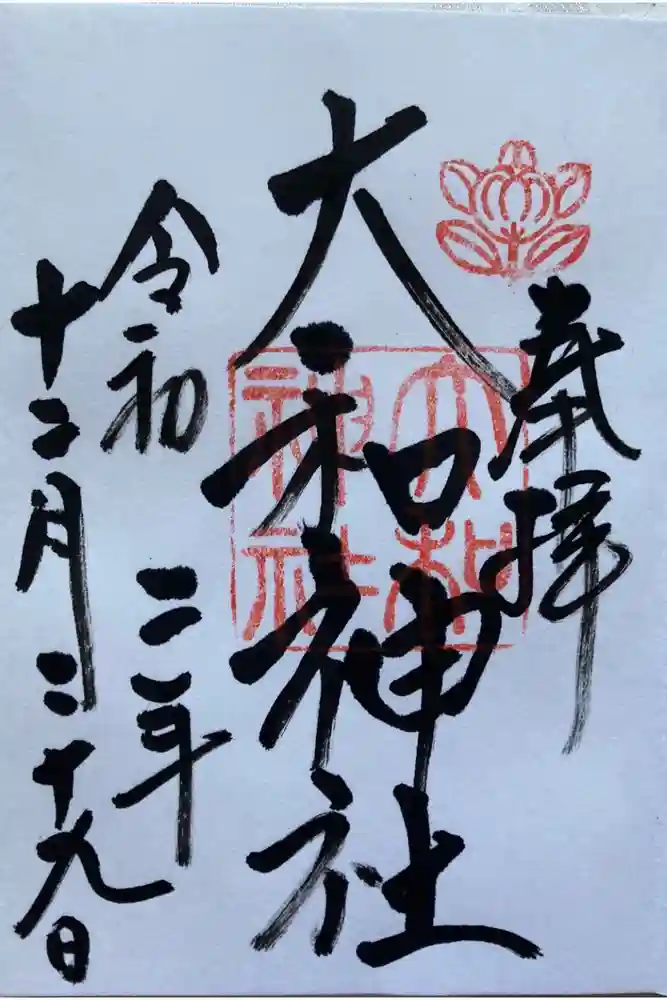 奉拝
大和神社
令和二年
十二月二十九日
大和
神社